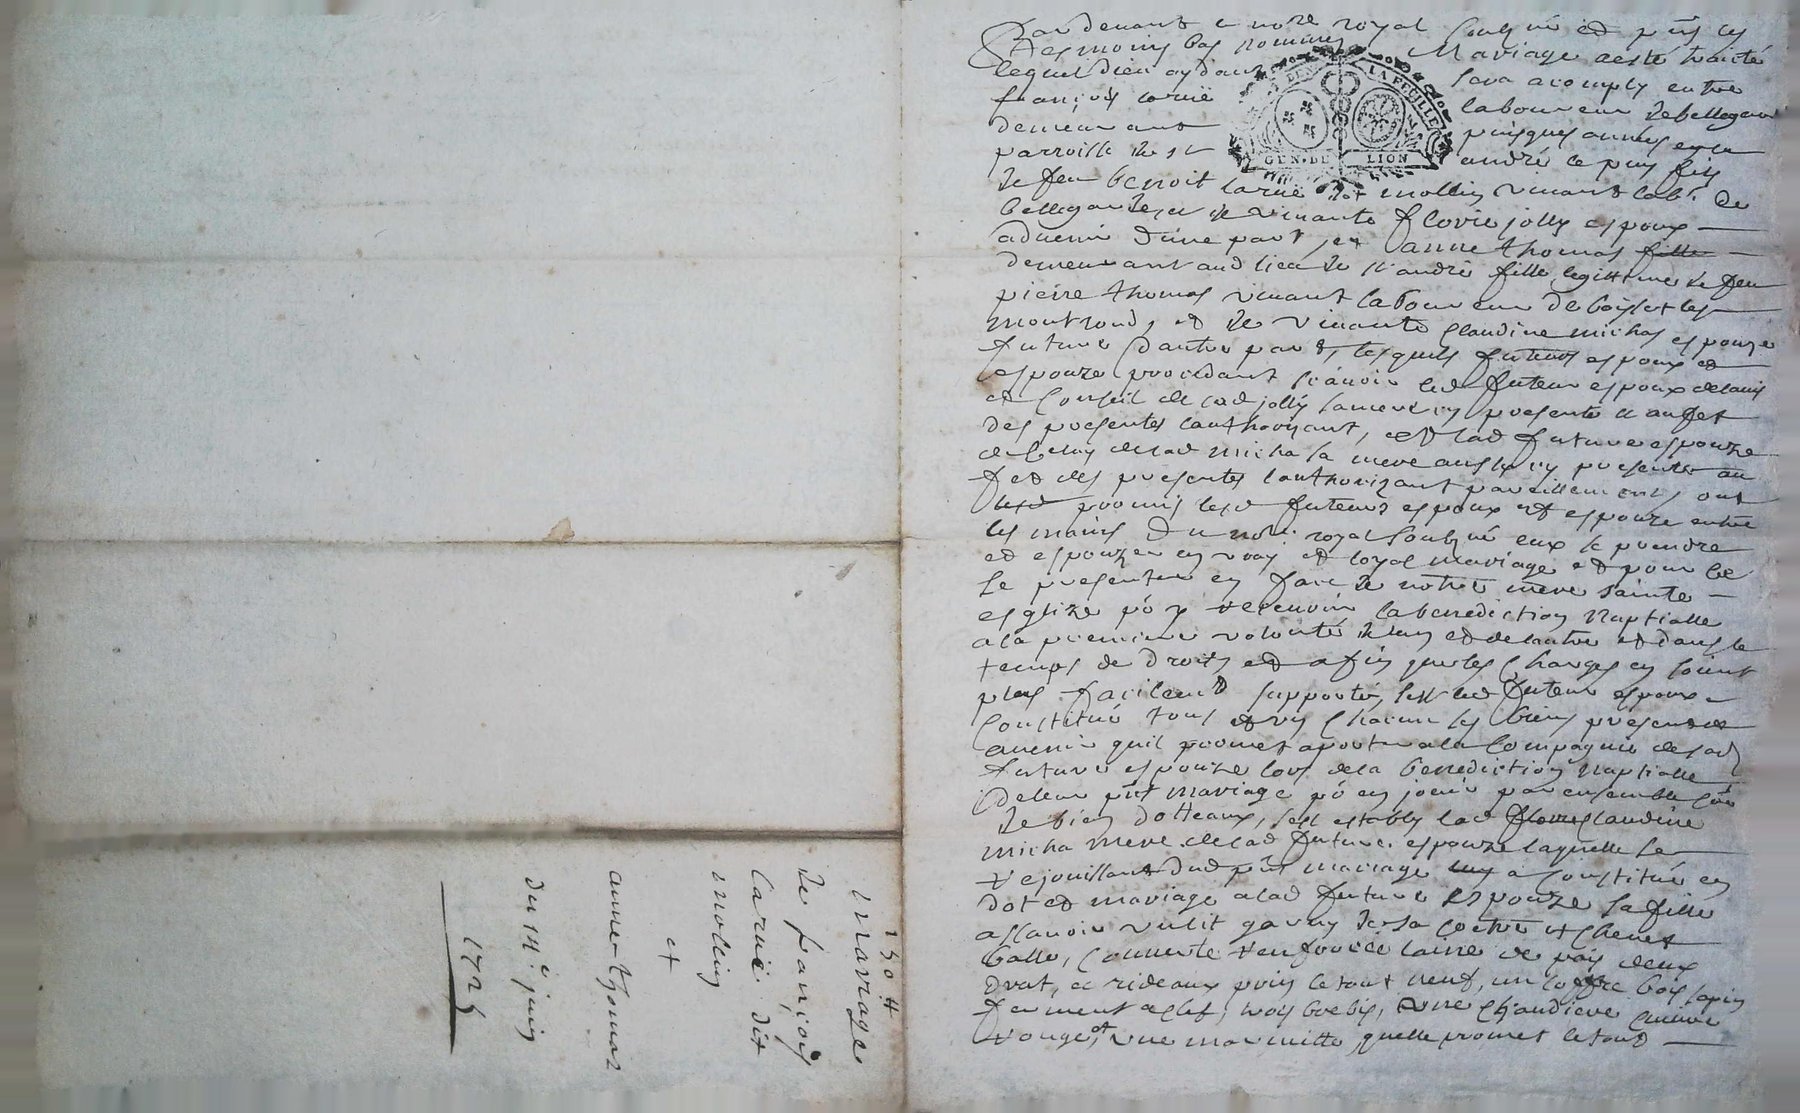 Par devant le no.re royal soubsné et pnts les
tesmoins bas nommés Mariage a esté traicté
lequel dieu aydant sera acomply entre
françois laruë laboureur de bellegarde
demeurant puisques années en la
parroisse de st andré le puy fils
de feu benoit laruë dit mollin vivant lab.r de
bellegarde, et de vivante florie jolly espoux
advenir d'une part, et anne thomas fille
demeurant aud lieu de st andré fille legittime de feu
pierre thomas vivant laboureur de boisset les
montrond, et de vivante Claudine michas espouze
future d'autre part, lesquels futeurs espoux et
espouze procedant scavoir led futeur espoux de lavis
et Conseil de lad jolly sa mere icy presente et au fet
des presentes l'authorizant, et lad future espouze
de celuy de lad micha sa mere aussy icy presente au
fet des presentes l'authorizant pareillement, ont
lesd promis lesd futeurs espoux et espouze entre
les mains du no.re royal soubsné eux se prendre
et espouzer en vray et loyal mariage et pour ce
se presenter en face de notre mere sainte
esglize po.r y recevoir la benediction nuptialle
a la premiere volonté de lun et de lautre et dans le
temps de droit, et afin que les charges en soient
plus facilem.t supportés, sest led futeur espoux
Constitué tous et un chacun ses biens presents et
avenir quil promet aporter a la Compagnie de sad
future espouze lors de la benediction nuptialle
de leur pnt mariage po.r en jouir par ensemble Co.e
de biens dotteaux, sest establye lad florie Claudine
micha mere de lad future espouze laquelle se
rejouissant dud pnt mariage luy a Constitué en
dot et mariage a lad future espouze sa fille
assavoir un lit garny de sa coetre et chevet
balle, Couverte tenforcée laine de pays deux
drat, et rideaux prin le tout neuf, un coffre bois sapin
fermant a clef, trois brebis, une chaudiere cuivre
rouge, et une marmitte, quelle promet le tout
150 tt
mariage
de françois
laruë dit
mollin
et
anne thomas
du 14.e juin
1725
GEN. DE LION
LA FEUILLE